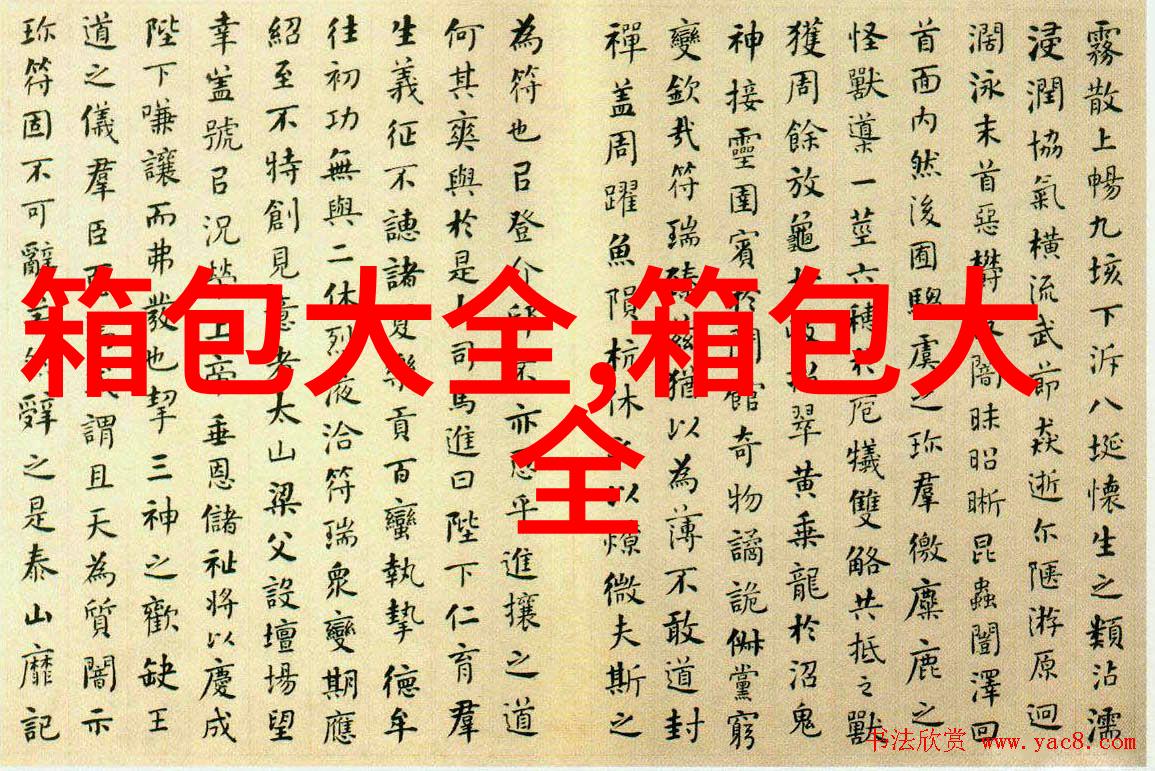 霧散上暢九垓下泝八埏懷生之類沾濡
浸潤協氣橫流武節猋逝尓陿游原迥
濶泳末首惡欝闇昧昭晰昆蟲闓澤回
首面内然後囿騶虞之珍羣徼麋鹿之
怪獸導一莖六穗於庖犧雙觡共抵之獸
獲周餘放龜于岐招翠黄乗龍於沼鬼
神接靈圉賓於閒館奇物譎詭俶黨窮
變欽哉符瑞臻兹猶以為薄不敢道封
禪盖周躍魚隕杭休之以燎微夫斯之
為符也㠯登介邱不亦恧乎進攘之道
何其爽與於是大司馬進曰陛下仁育羣
生義征不譓諸夏樂貢百蠻執摯德牟
往初功無與二休烈液洽符瑞衆變期應
紹至不特創見意者太山梁父設壇場望
幸盖號㠯況榮上帝垂恩儲祉將以慶成
陛下嗛讓而弗發也挈三神之歡缺王
道之儀羣臣恧謂且天為質闇示
珍符固不可辭若然辤之是泰山靡記
箱包大全,箱包大
全
书法欣赏 www.yac8.com